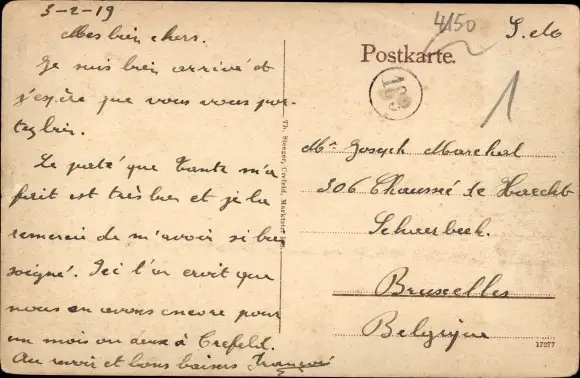 3-2-19
Mes bien chers.
Je suis bien arrivé et
j'espère que vous vous por-
tez bien.
Le paté que Tante m'a
fait est très bon et je la
remercie de m'avoir si bien
soigné. Ici l'on croit que
nous en avons encore pour
un mois ou deux à Crefeld.
Au revoir et bons baisers François
4150
S. M
Postkarte.
183
1
Th. Steeger, Crefeld, Marktstr.
Mr Joseph Marchal
306 Chaussée de Haecht
Schaerbeek.
Bruxelles
Belgique
17277